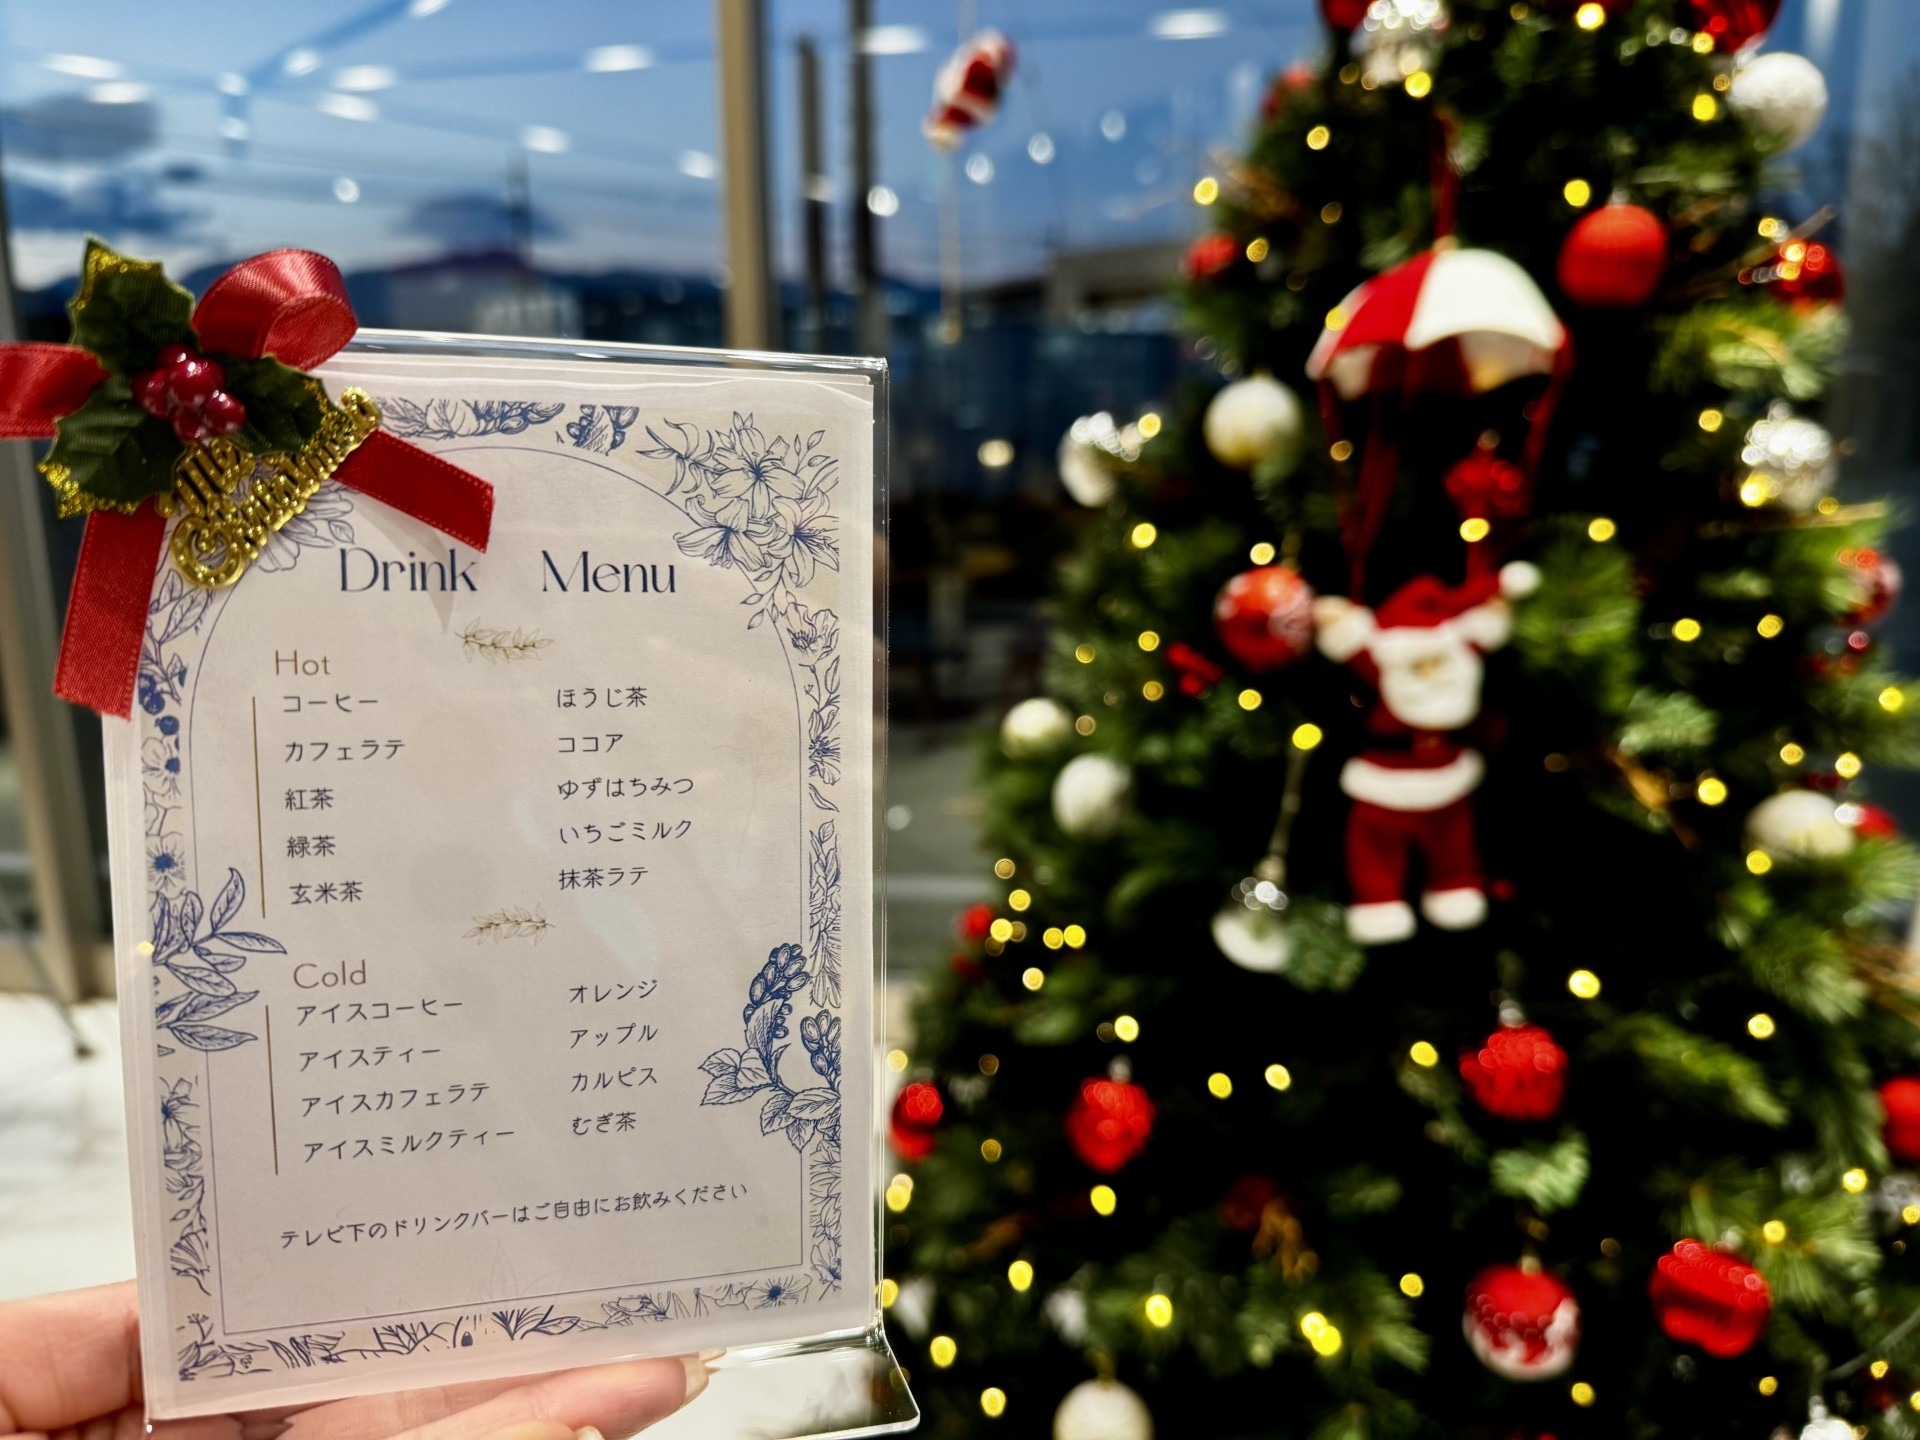 Merry
Christmas
Drink Menu
Hot
コーヒー
カフェラテ
紅茶
緑茶
玄米茶
ほうじ茶
ココア
ゆずはちみつ
いちごミルク
抹茶ラテ
Cold
アイスコーヒー
アイスティー
アイスカフェラテ
アイスミルクティー
オレンジ
アップル
カルピス
むぎ茶
テレビ下のドリンクバーはご自由にお飲みください